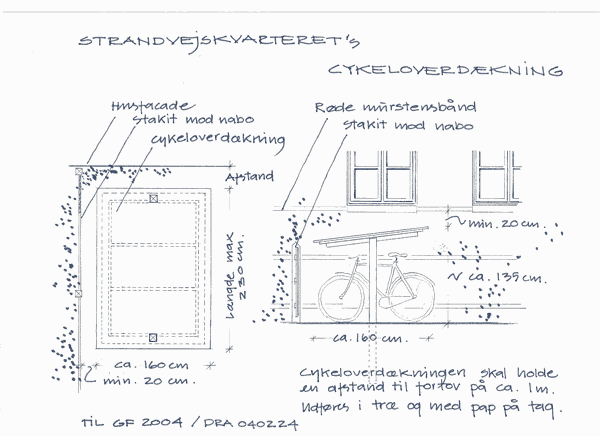 STRANDVEJSKVARTERET's
CYKELOVERDÆKNING
Husfacade
stakit mod nabo
cykeloverdækning
Afstand
Længde max
230 cm.
ca. 160 cm
min. 20 cm.
Røde murstensbånd
stakit mod nabo
min. 20 cm.
ca. 135 cm.
ca. 160 cm.
Cykeloverdækningen skal holde
en afstand til fortov på ca. 1m.
Udføres i træ og med pap på tag.
TIL GF 2004 / DRA 040224